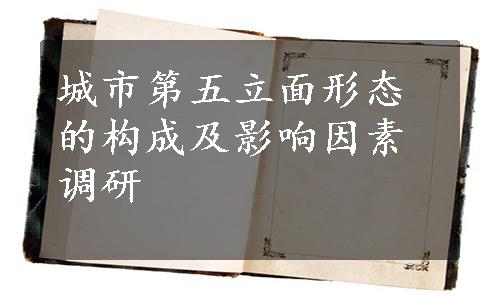 城市第五立面形态
的构成及影响因素
调研